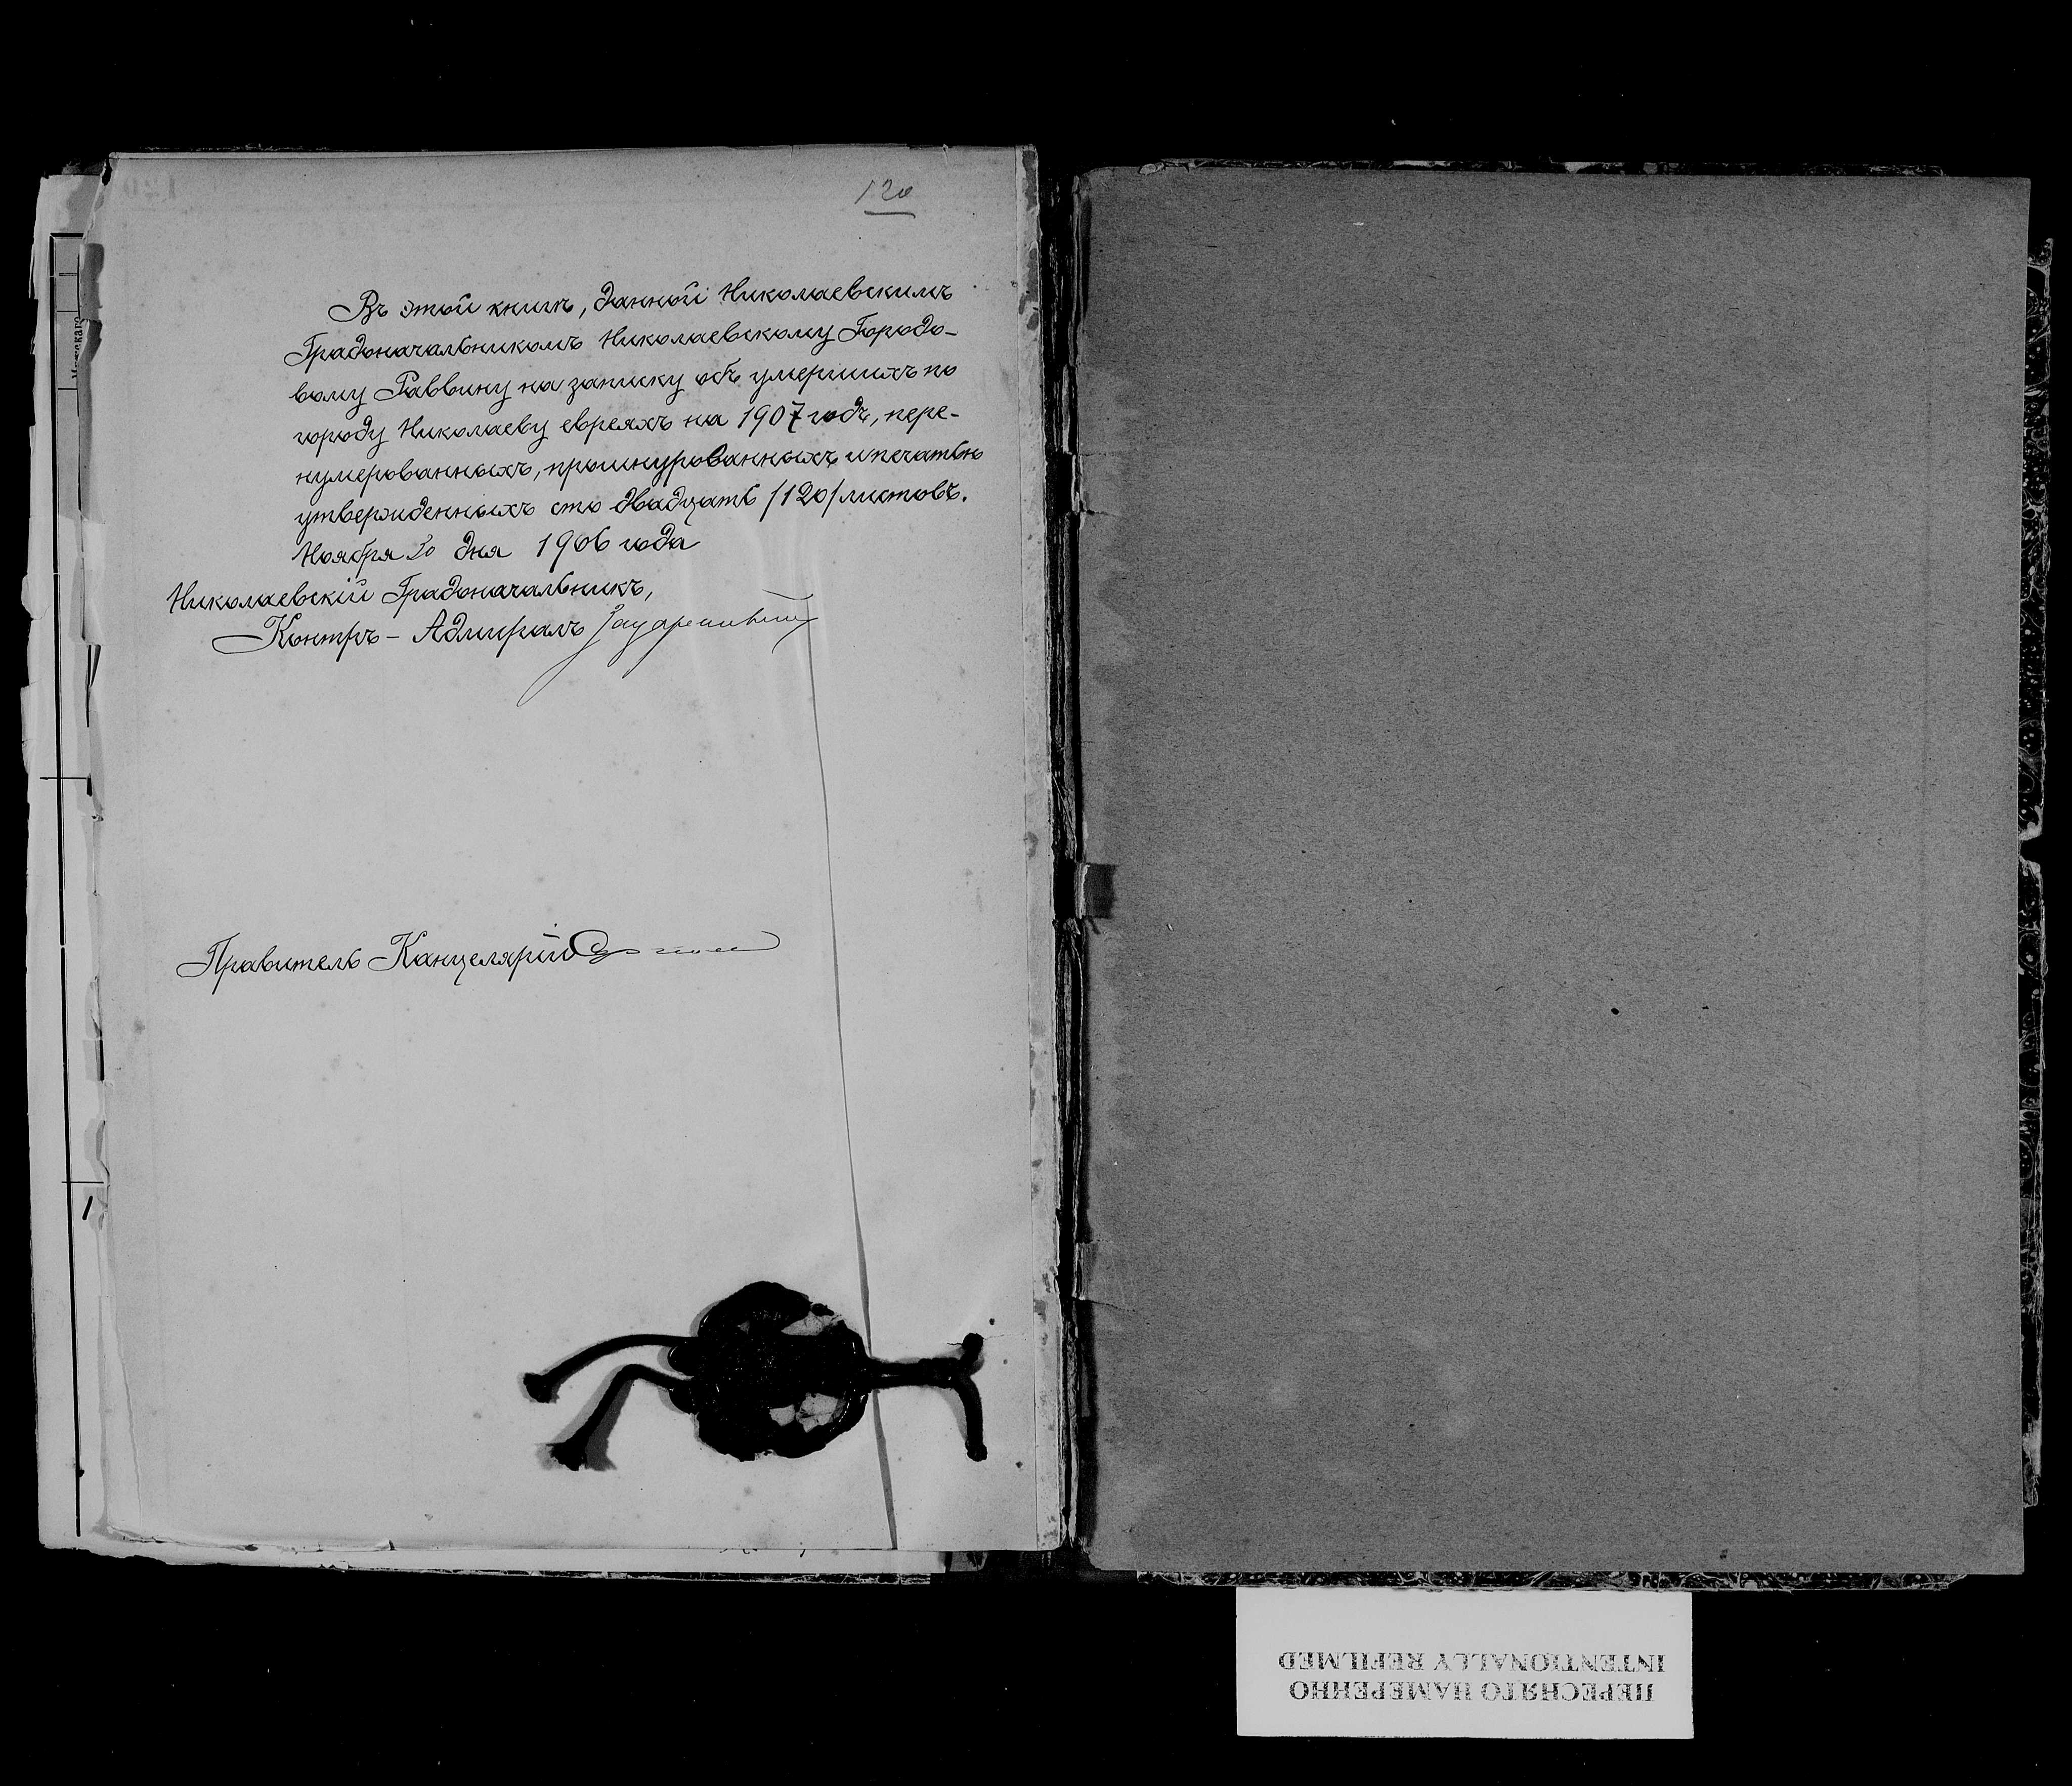 120
Въ этой книгѣ, данной Николаевскимъ
Градоначальникомъ Николаевскому Городо-
вому Раввину на записку объ умершихъ по
городу Николаеву евреяхъ на 1907 годъ, пере-
нумерованныхъ, прошнурованныхъ и печатью
утвержденныхъ сто двадцать /120/ листовъ.
Ноября 30 дня 1906 года
Николаевскій Градоначальникъ,
Контръ-Адмиралъ
Правитель Канцеляріи
ПЕРЕСНЯТО НАМЕРЕННО
INTENTIONALLY REFILMED